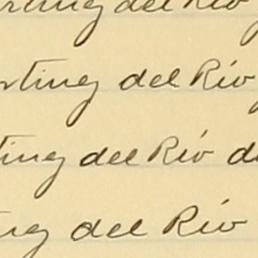 rting del Río
rting del Río
ting del Río de
ng del Río